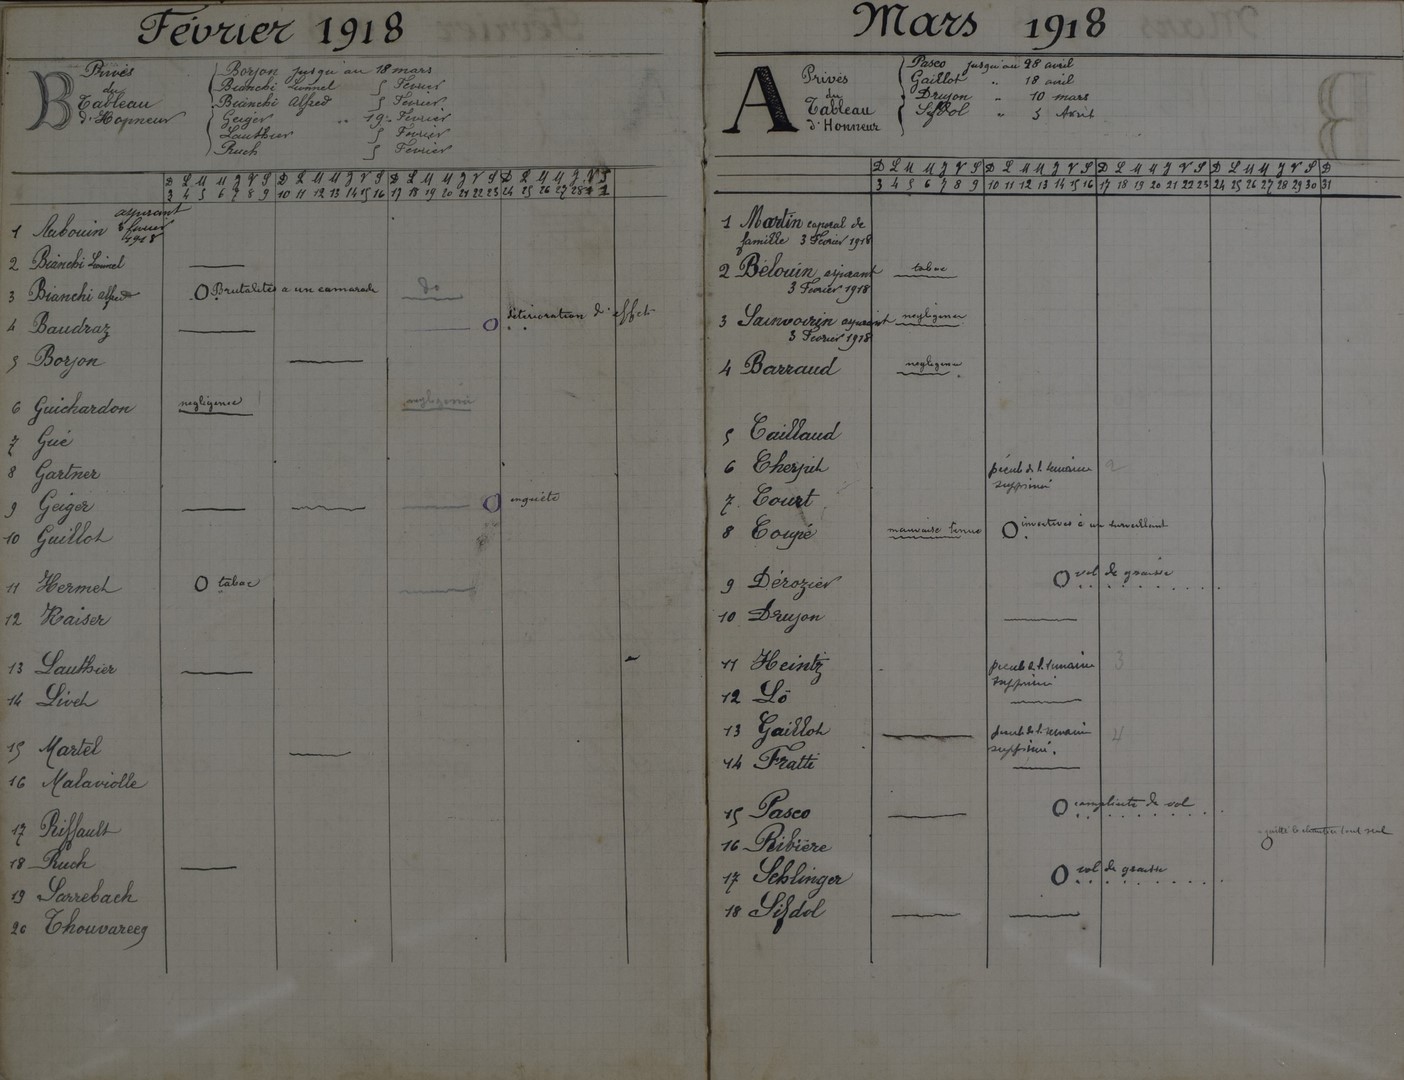 Février 1918
B Privés du Tableau d'Honneur
Borjon jusqu'au 18 mars
Bianchi Lionnel 5 Fevrier
Bianchi Alfred 5 Fevrier
Geiger " 19 Fevrier
Lauthier 5 Fevrier
Ruch 5 Fevrier
D L M M J V S D L M M J V S D L M M J V S D L M M J V S
3 4 5 6 7 8 9 10 11 12 13 14 15 16 17 18 19 20 21 22 23 24 25 26 27 28 1 2
1 Aubouin aspirant 8 février 1918
2 Bianchi Lionnel
3 Bianchi alfred Brutalités a un camarade do
4 Baudraz détérioration d'effets
5 Borjon
6 Guichardon negligence negligence
7 Gué
8 Gartner
9 Geiger enquête
10 Guillot
11 Hermet tabac
12 Kaiser
13 Lauthier
14 Livet
15 Martel
16 Malaviolle
17 Riffault
18 Ruch
19 Sarrebach
20 Thouvarecq
Mars 1918
A Privés du Tableau d'Honneur
Pasco jusqu'au 28 avril
Gaillot " 18 avril
Drujon " 10 mars
Sifdol " 5 Avril
D L M M J V S D L M M J V S D L M M J V S D L M M J V S D
3 4 5 6 7 8 9 10 11 12 13 14 15 16 17 18 19 20 21 22 23 24 25 26 27 28 29 30 31
1 Martin caporal de
famille 3 Février 1918
2 Bélouin aspirant tabac
3 Février 1918
3 Sainvoirin aspirant negligence
3 Fevrier 1918
4 Barraud negligence
5 Caillaud
6 Cherpit pécule de l. semaine 2
supprimé
7 Court
8 Coupé mauvaise tenue invectives à un surveillant
9 Dérozier vol de graisse
10 Drujon
11 Heintz pecule de l. semaine 3
supprimé
12 Lô
13 Gaillot pecule de l. semaine 4
supprimé.
14 Fratti
15 Pasco complicité de vol
16 Ribière quitté le chantier tout seul
17 Schlinger vol de graisse
18 Sifdol